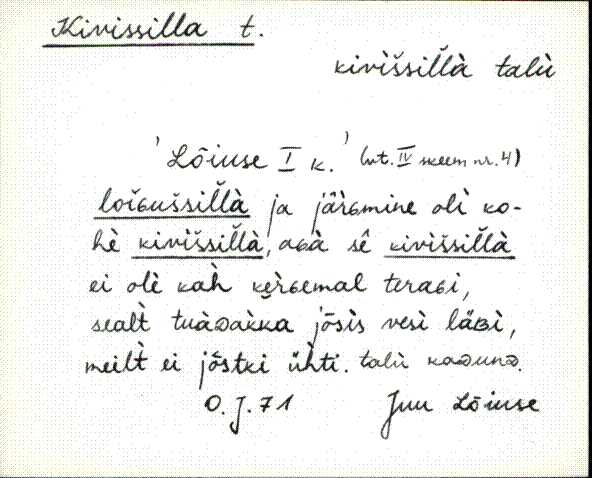 Kivissilla t.
kivìšsiľľà talù
'Lõiuse I k.' (vt. IV skeem nr. 4)
loiɢušsiľľà ja järɢmine olì ko-
hè kivìšsiľľà, aʙà sê kivìšsiľľà
ei olè kah̀ kɛrɢemal teraʙi,
sealt̀ tuàᴅakka jõsìs vesì läʙì,
meilt̀ ei jõstki ühti. talù kaᴅunᴅ.
O.J.71 Juu Lõiuse